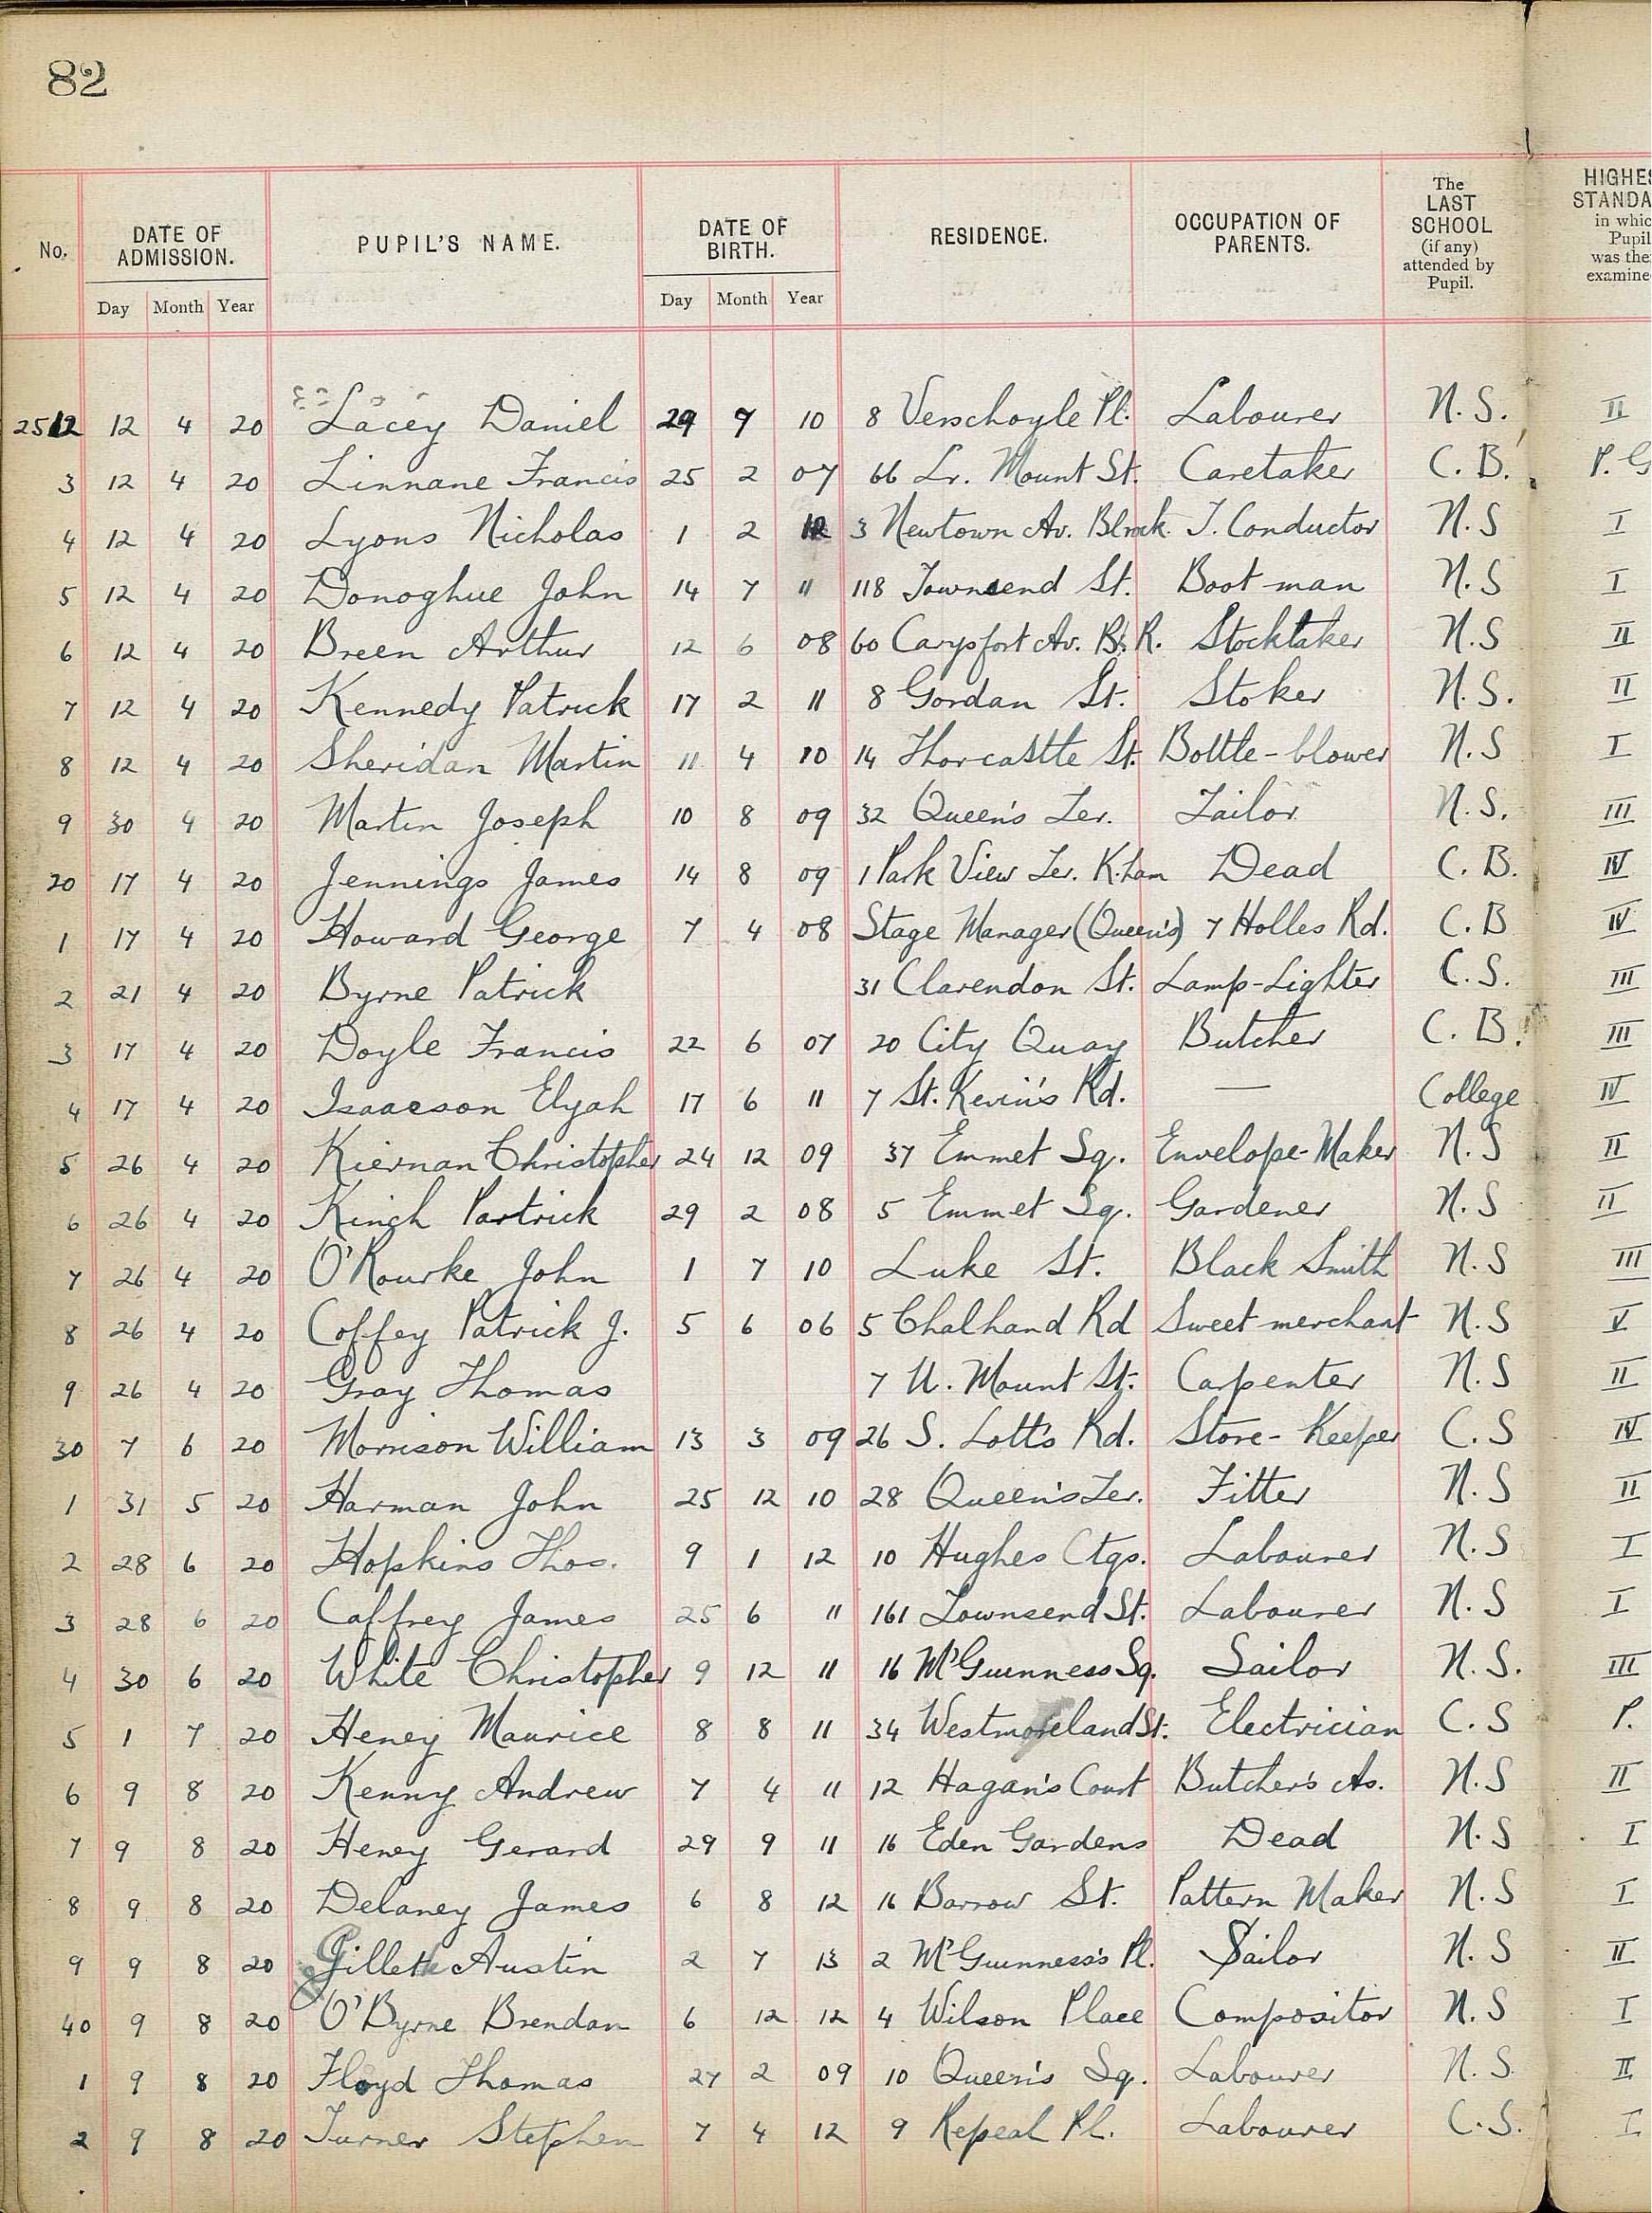 82
No. DATE OF ADMISSION. PUPIL'S NAME. DATE OF BIRTH. RESIDENCE. OCCUPATION OF PARENTS. The LAST SCHOOL (if any) attended by Pupil. HIGHES STANDA in whic Pupil was the examine
Day Month Year Day Month Year
2512 12 4 20 Lacey Daniel 29 7 10 8 Verschoyle Pl. Labourer N. S. II
3 12 4 20 Linnane Francis 25 2 07 66 Lr. Mount St. Caretaker C. B. P. G
4 12 4 20 Lyons Nicholas 1 2 12 3 Newtown Av. Blrock. T. Conductor N. S I
5 12 4 20 Donoghue John 14 7 11 118 Townsend St. Boot-man N. S I
6 12 4 20 Breen Arthur 12 6 08 60 Carysfort Av. B. R. Stocktaker N. S II
7 12 4 20 Kennedy Patrick 17 2 11 8 Gordan St. Stoker N. S. II
8 12 4 20 Sheridan Martin 11 4 10 14 Thorcastle St. Bottle-blower N. S I
9 30 4 20 Martin Joseph 10 8 09 32 Queen's Ter. Tailor N. S. III
20 17 4 20 Jennings James 14 8 09 1 Park View Ter. K.ham Dead C. B. IV
1 17 4 20 Howard George 7 4 08 Stage Manager (Queen's) 7 Holles Rd. C. B IV
2 21 4 20 Byrne Patrick 31 Clarendon St. Lamp-Lighter C. S. III
3 17 4 20 Doyle Francis 22 6 07 20 City Quay Butcher C. B. III
4 17 4 20 Isaacson Elyah 17 6 11 7 St. Kevin's Rd. — College IV
5 26 4 20 Kiernan Christopher 24 12 09 37 Emmet Sq. Envelope-Maker N. S II
6 26 4 20 Kinch Partrick 29 2 08 5 Emmet Sq. Gardener N. S II
7 26 4 20 O'Rourke John 1 7 10 Luke St. Black Smith N. S III
8 26 4 20 Coffey Patrick J. 5 6 06 5 Chalhand Rd Sweet merchant N. S V
9 26 4 20 Gray Thomas 7 U. Mount St. Carpenter N. S II
30 7 6 20 Morrison William 13 3 09 26 S. Lotts Rd. Store-Keeper C. S IV
1 31 5 20 Harman John 25 12 10 28 Queen's Ter. Fitter N. S II
2 28 6 20 Hopkins Thos. 9 1 12 10 Hughes Ctgs. Labourer N. S I
3 28 6 20 Caffrey James 25 6 11 161 Townsend St. Labourer N. S I
4 30 6 20 White Christopher 9 12 11 16 McGuinness Sq. Sailor N. S. III
5 1 7 20 Heney Maurice 8 8 11 34 Westmoreland St. Electrician C. S P.
6 9 8 20 Kenny Andrew 7 4 11 12 Hagan's Court Butcher's As. N. S II
7 9 8 20 Heney Gerard 29 9 11 16 Eden Gardens Dead N. S I
8 9 8 20 Delaney James 6 8 12 16 Barrow St. Pattern Maker N. S I
9 9 8 20 Gillette Austin 2 7 13 2 McGuinness's Pl. Sailor N. S II
40 9 8 20 O'Byrne Brendan 6 12 12 4 Wilson Place Compositor N. S I
1 9 8 20 Floyd Thomas 27 2 09 10 Queen's Sq. Labourer N. S. II
2 9 8 20 Turner Stephen 7 4 12 9 Repeal Pl. Labourer C. S. I